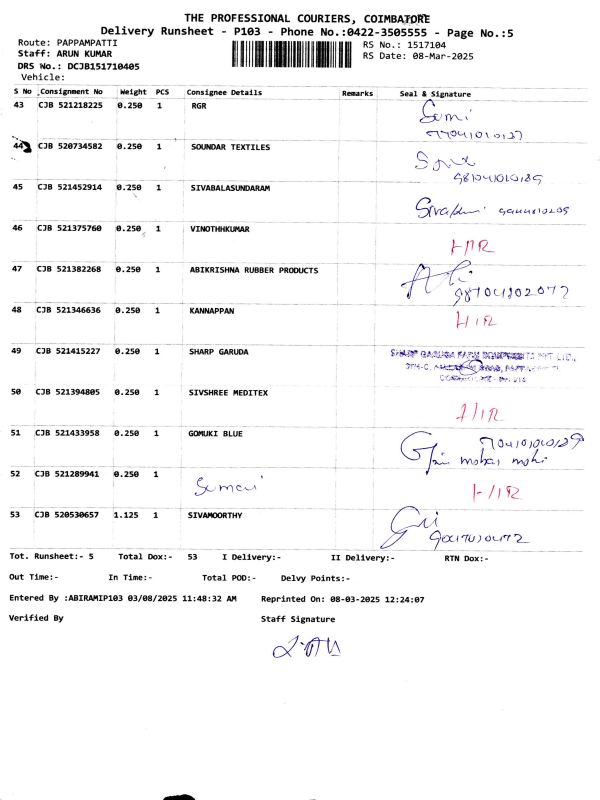 THE PROFESSIONAL COURIERS, COIMBATORE
Delivery Runsheet - P103 - Phone No.:0422-3505555 - Page No.:5
Route: PAPPAMPATTI RS No.: 1517104
Staff: ARUN KUMAR RS Date: 08-Mar-2025
DRS No.: DCJB151710405
Vehicle:
S No Consignment No Weight PCS Consignee Details Remarks Seal & Signature
43 CJB 521218225 0.250 1 RGR
44 CJB 520734582 0.250 1 SOUNDAR TEXTILES
45 CJB 521452914 0.250 1 SIVABALASUNDARAM
46 CJB 521375760 0.250 1 VINOTHHKUMAR
47 CJB 521382268 0.250 1 ABIKRISHNA RUBBER PRODUCTS
48 CJB 521346636 0.250 1 KANNAPPAN
49 CJB 521415227 0.250 1 SHARP GARUDA
50 CJB 521394805 0.250 1 SIVSHREE MEDITEX
51 CJB 521433958 0.250 1 GOMUKI BLUE
52 CJB 521289941 0.250 1
53 CJB 520530657 1.125 1 SIVAMOORTHY
Tot. Runsheet:- 5 Total Dox:- 53 I Delivery:- II Delivery:- RTN Dox:-
Out Time:- In Time:- Total POD:- Delvy Points:-
Entered By :ABIRAMIP103 03/08/2025 11:48:32 AM Reprinted On: 08-03-2025 12:24:07
Verified By Staff Signature